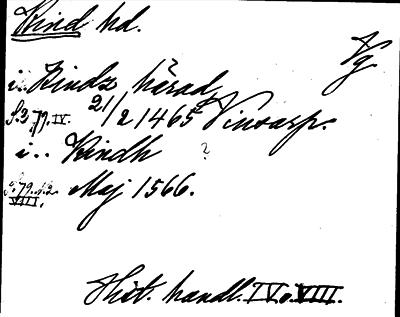 Kind hd.
Vg.
i.. Kindz härad,
S. 379. IV. 21/2 1465 Vinrasp.
i.. Kindh ?
VIII. Maj 1566.
Hist. handl. IV o. VIII.